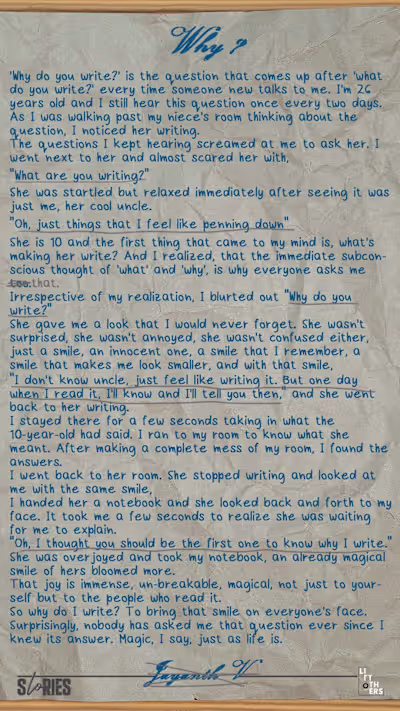 Why?
'Why do you write?' is the question that comes up after 'what
do you write?' every time someone new talks to me. I'm 26
years old and I still hear this question once every two days.
As I was walking past my niece's room thinking about the
question, I noticed her writing.
The questions I kept hearing screamed at me to ask her. I
went next to her and almost scared her with,
"What are you writing?"
She was startled but relaxed immediately after seeing it was
just me, her cool uncle.
"Oh, just things that I feel like penning down"
She is 10 and the first thing that came to my mind is, what's
making her write? And I realized, that the immediate subcon-
scious thought of 'what' and 'why', is why everyone asks me
too.that.
Irrespective of my realization, I blurted out "Why do you
write?"
She gave me a look that I would never forget. She wasn't
surprised, she wasn't annoyed, she wasn't confused either,
just a smile, an innocent one, a smile that I remember, a
smile that makes me look smaller, and with that smile,
"I don't know uncle, just feel like writing it. But one day
when I read it, I'll know and I'll tell you then," and she went
back to her writing.
I stayed there for a few seconds taking in what the
10-year-old had said. I ran to my room to know what she
meant. After making a complete mess of my room, I found the
answers.
I went back to her room. She stopped writing and looked at
me with the same smile,
I handed her a notebook and she looked back and forth to my
face. It took me a few seconds to realize she was waiting
for me to explain.
"Oh, I thought you should be the first one to know why I write."
She was overjoyed and took my notebook, an already magical
smile of hers bloomed more.
That joy is immense, un-breakable, magical, not just to your-
self but to the people who read it.
So why do I write? To bring that smile on everyone's face.
Surprisingly, nobody has asked me that question ever since I
knew its answer. Magic, I say, just as life is.
Jayanth V
StoRIES
LI
FT
OTH
ERS